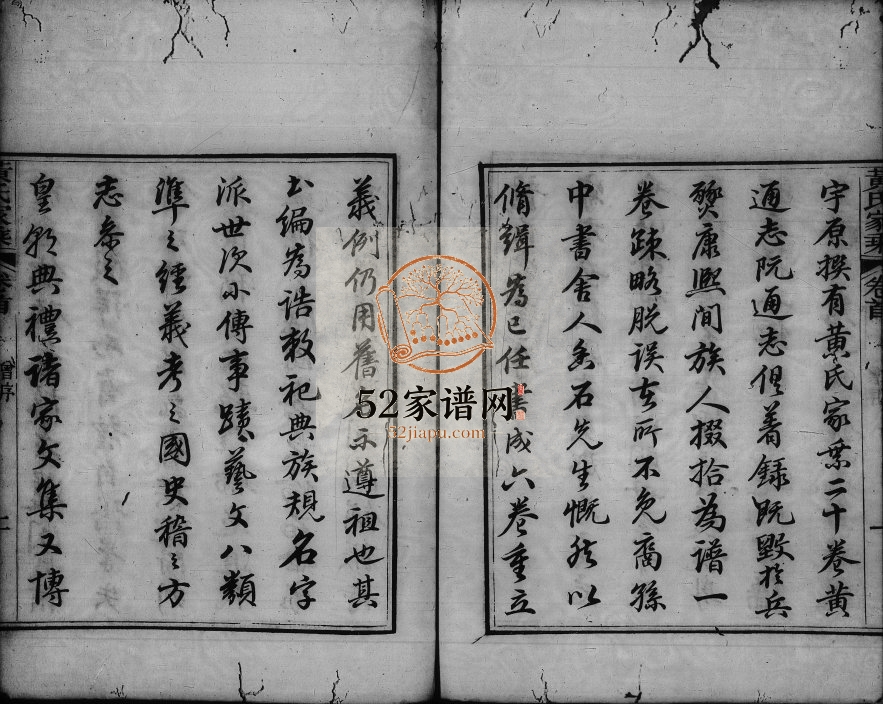 宇原撰有黄氏家乗二十卷黄
通志阮通志俱著録既毀於兵
燹康熙間族人掇拾為譜一
卷疎略脱误在所不免裔孫
中書舍人香石先生慨然以
脩輯為己任 成六卷重立
義例仍用舊名示遵祖也其
書編為誥敕祀典族規名字
派世次小傳事蹟藝文八類
準之經義考之國史稽之方
志參之
皇朝典禮諸家文集又博
黃氏家乘
卷首
黃氏家乘
卷首
曾序
52家谱网
52jiapu.com